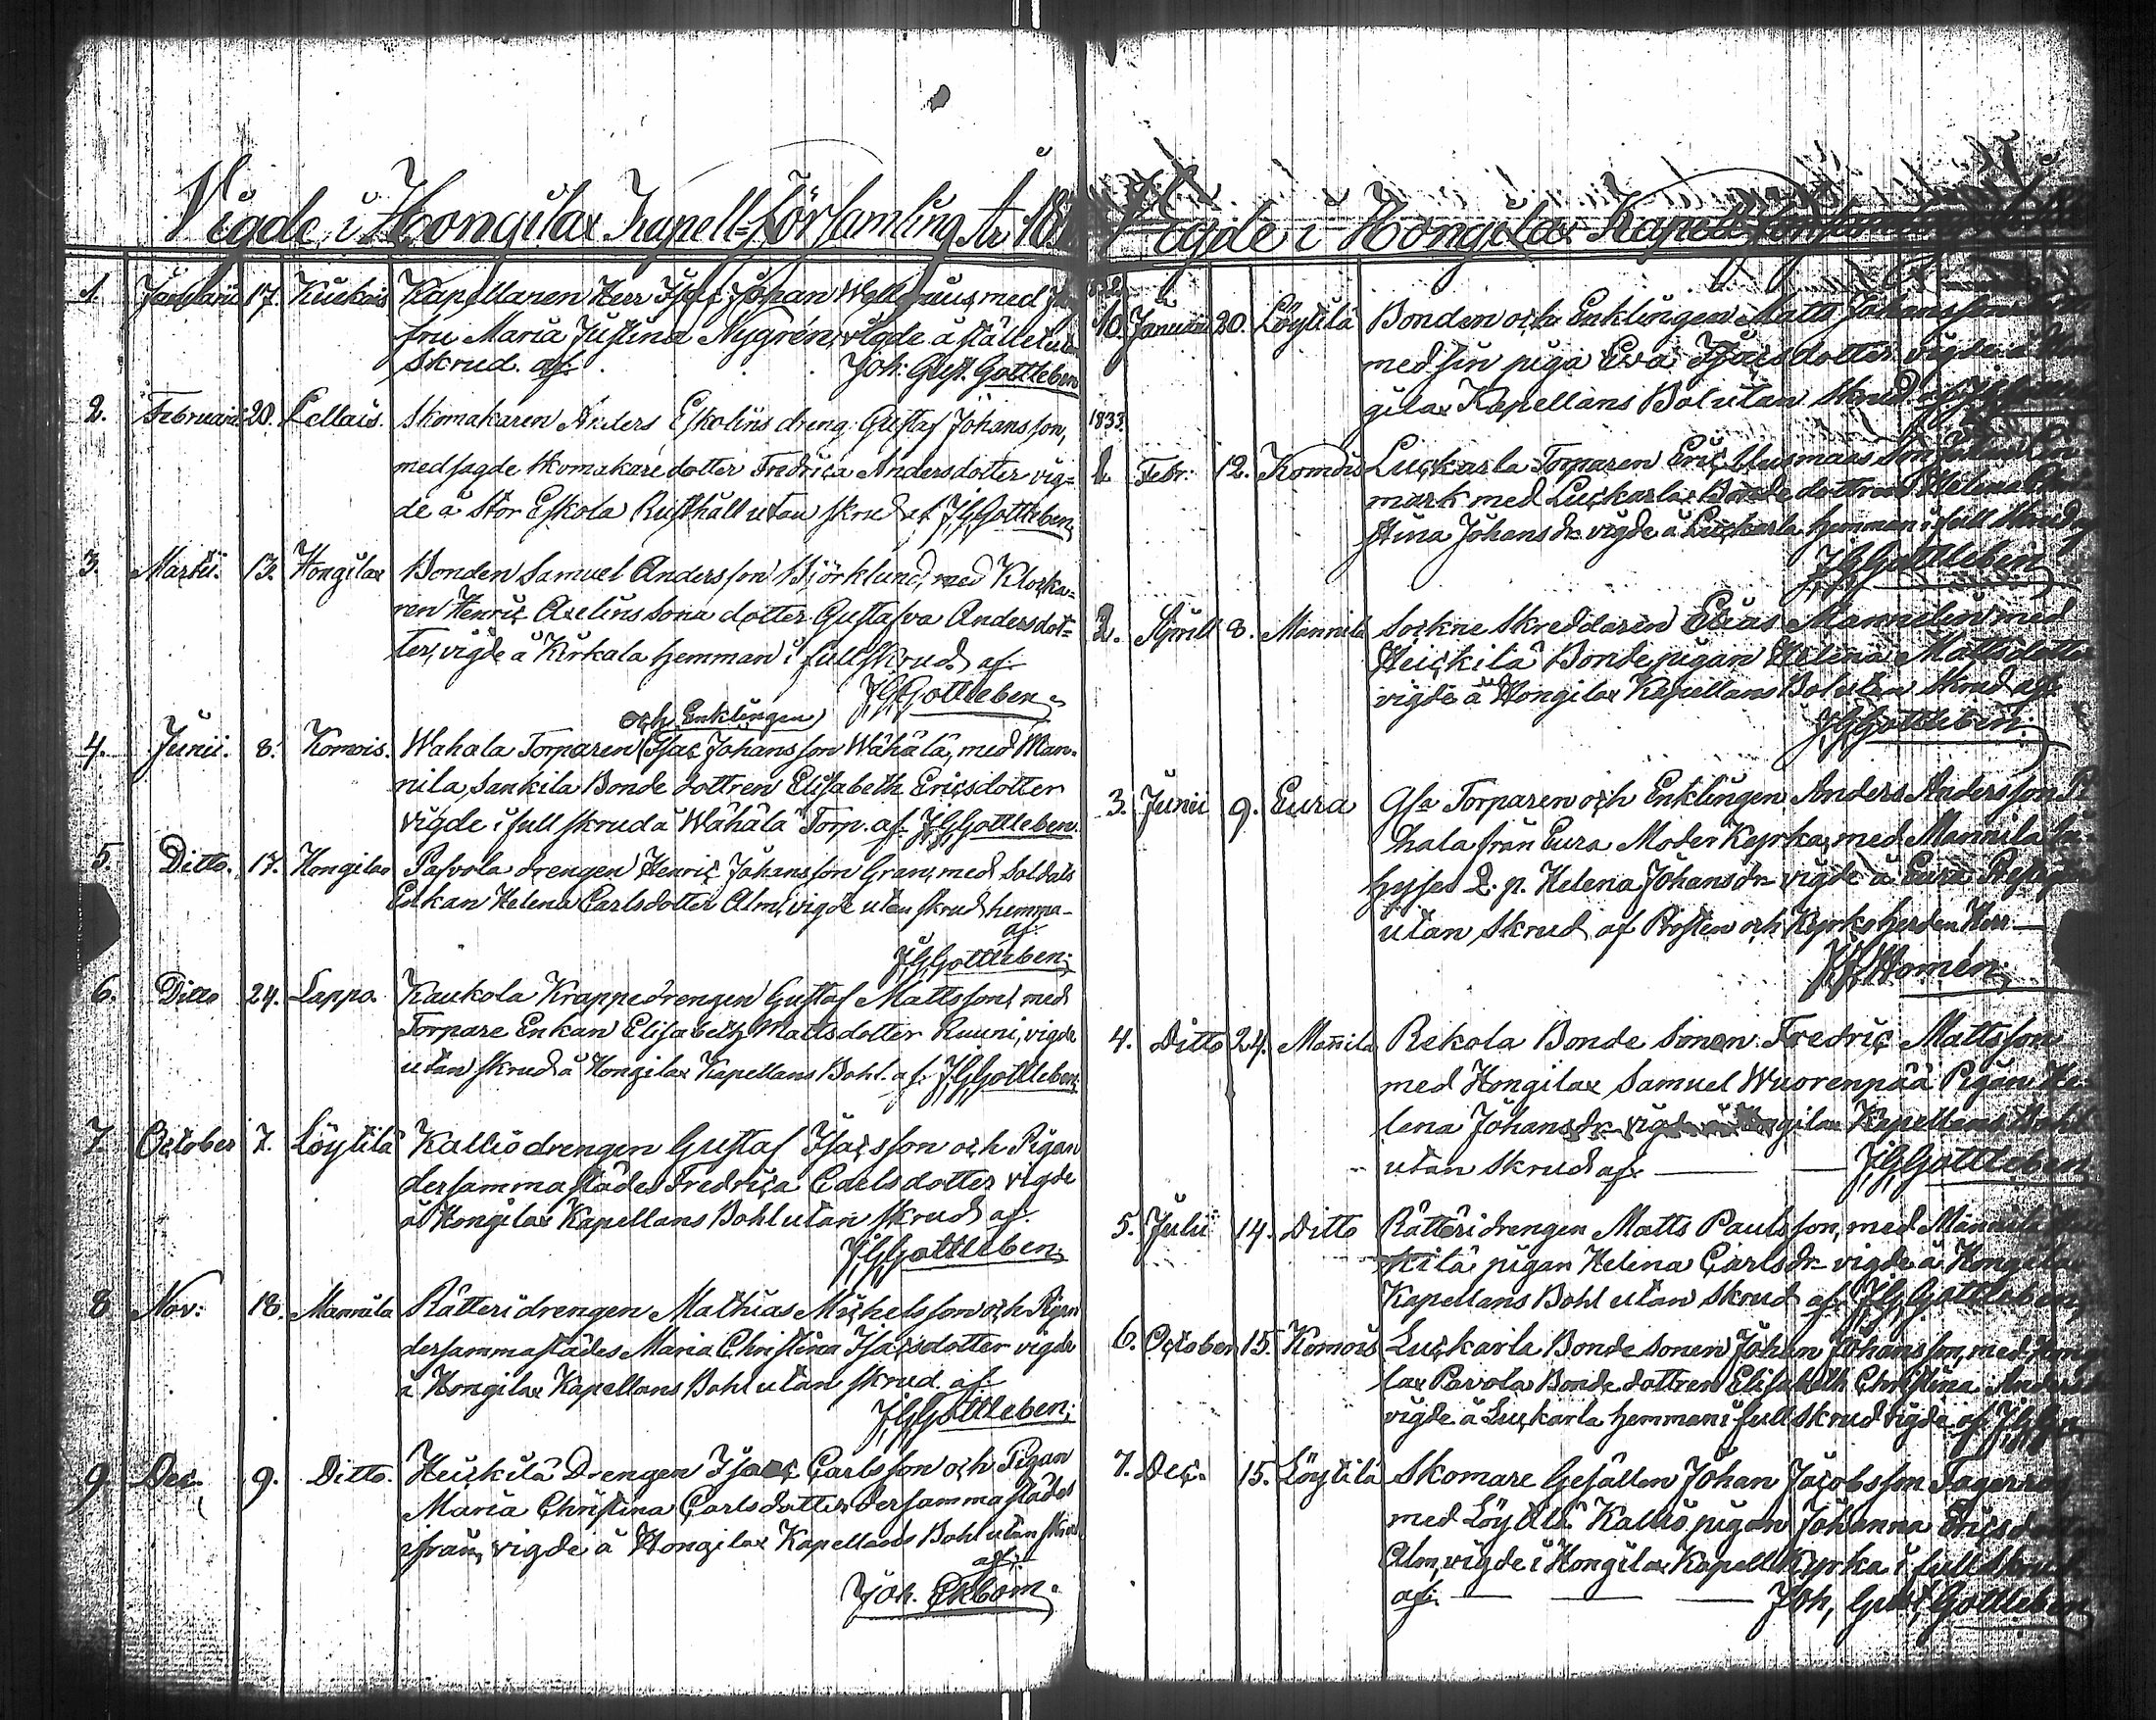 Vigde i Hongilax Kapell-församling År 18
1. Januarii 17. Kuckois Kapellanen Herr Isac Johan Wellenius, med Jung
fru Maria Justina Nygrén, vigde å stället utan
skrud af. Joh: Gust. Gottleben
2. Februarii 20. Lellais. Skomakaren Anders Eskolins dreng Gustaf Johansson,
med sagde skomakare dotter Fredrica Andersdotter vig-
de å Stor Eskola Rusthåll utan skrud af JGGottleben
3. Martii. 13. Hongilax Bonden Samuel Andersson Björklund, med Klocka-
ren Henric Axelins sona dotter Gustafva Andersdot-
ter, vigde å Kirkala hemman i full skrud af
JGGottleben
och Enklingen
4. Junii. 8. Komois. Wahala Torparen Isac Johansson Wähälä, med Man-
nila, Sankila Bonde dottren Elisabeth Ericsdotter
vigde i full skrud å Wähälä Torp. af JGGottleben.
5. Ditto. 17. Hongilax Pavola drengen Henric Johansson Gran, med Soldats
Enkan Helena Carlsdotter Alm, vigde utan skrud hemma-
af.
JGGottleben;
6. Ditto 24. Lappo. Kaukola Krappedrengen Gustaf Mattsson, med
Torpare Enkan Elisabeth Mattsdotter Ruuni, vigde
utan skrud å Hongilax Kapellans Bohl. af. JGGottleben;
7. October 7. Löytilä Kallio drengen Gustaf Isacsson och Pigan
dersammastädes Fredrica Carlsdotter vigde
å Hongilax Kapellans Bohl utan skrud af.
JGGottleben;
8 Nov: 18. Mannila Rätteri drengen Mathias Michelsson och Pigan
dersammastädes Maria Christina Isacsdotter vigde
å Hongilax Kapellans Bohl utan skrud. af
JGGottleben;
9 Dec. 9. Ditto. Heickilä Drengen Isaac Carlsson och Pigan
Maria Christina Carlsdotter dersammastädes
ifrån, vigde å Hongilax Kapellans Bohl utan skrud
af:
Joh. Ekbom.
Vigde i Hongilax Kapell
10. Januarii 20. Löytilä Bonden och Enklingen Matts Johansson
med sin piga Eva Isacsdotter vigde å Hon
gilax Kapellans Bol utan skrud af
1833.
1 Febr: 12. Komois Luckarla Torparen Eric Uusmaas Son Johan
mark med Luckarla Bonde dottren Helena
stina Johansdr vigde å Luckarla hemman i full skrud af
JGGottleben
2. Aprill 8. Mannila Sockne Skreddaren Elias Mannilen med
Heickilä Bonde pigan Helena Mattsdotter
vigde å Hongilax Kapellans Bol utan skrud af
JGGottleben:
3. Junii 9. Eura Gle Torparen och Enklingen Anders Andersson
hala från Eura Moder Kyrka, med Mannila
hysses Q. p. Helena Johansdr vigde å Eura
utan skrud af Prosten och Kyrkoherden Herr
Homén;
4. Ditto 24. Mañila Rekola Bonde sonen Fredric Mattsson
med Hongilax Samuel Wuorenpää Pigan He-
lena Johansdr vigde å Hongilax Kapellans Bohl
utan skrud af. JGGottleben
5. Julii 14. Ditto Rätteri drengen Matts Paulsson, med Mannila
kilä pigan Helena Carlsdr vigde å Hongilax
Kapellans Bohl utan skrud af JGGottleben
6. October 15. Komois Luckarla Bonde sonen Johan Johansson, med Hongi
lax Pavola Bonde dottren Elisabeth Christina Anders
vigde å Luckarla hemman i full skrud vigde af JGG
7. Dec. 15. Löytilä Skomare Gesällen Johan Jacobsson Fagerro
med Löytilä Kallio pigan Johanna Ericsdotter
Alm, vigde i Hongilax Kapell Kyrka i full skrud
af. Joh, Gust, Gottleben